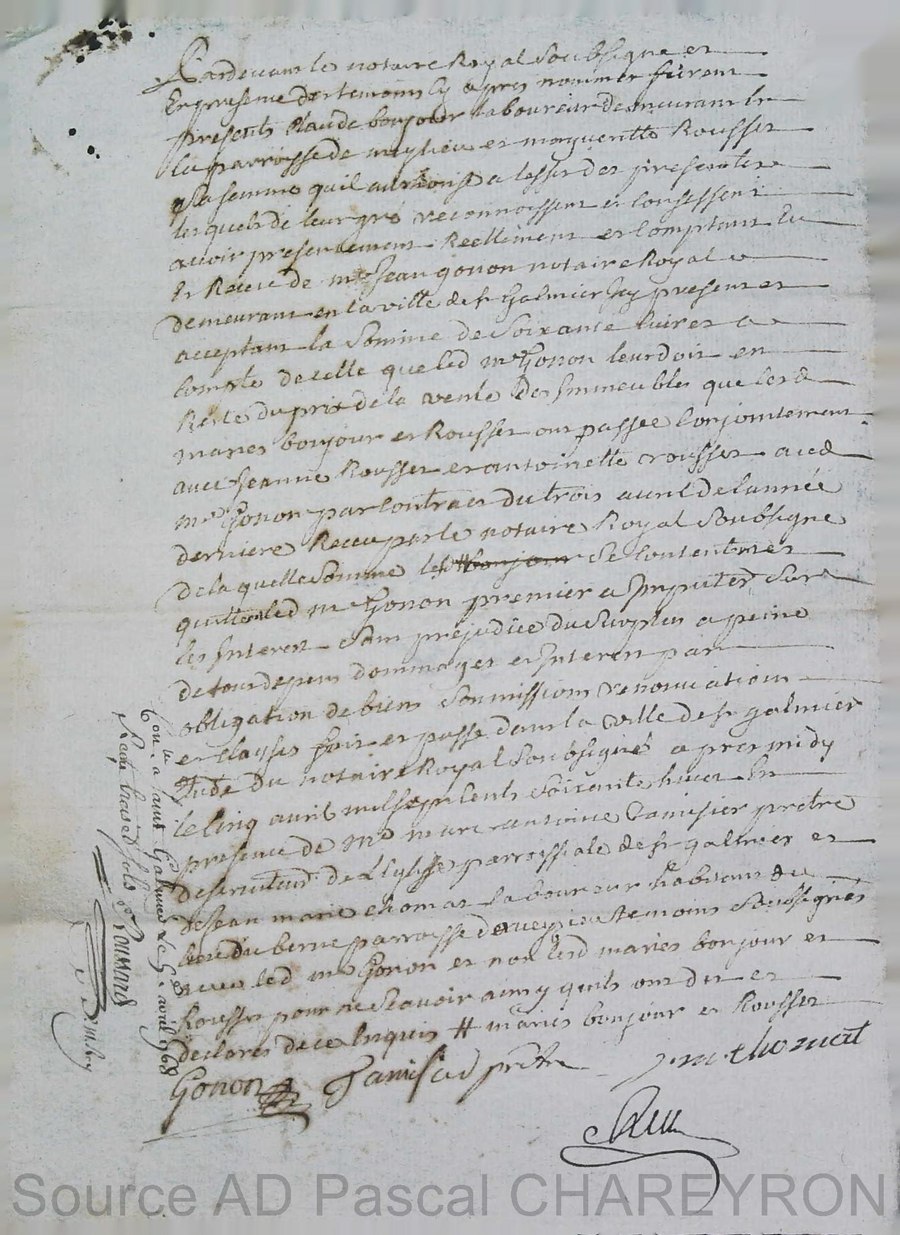 Pardevant le notaire Royal Soubsigne et
En presence des temoins cy apres nommer furent
presents Claude bonjour laboureur demeurant En
la parroisse de et margueritte Rousset
Sa femme qu'il authorise a lesset des presentes
lesquels de leur gré reconnoissent et Confessent
avoir presentement Reellement et Comptant Eu
et Receu de me Jean gonon notaire Royal
demeurant en la ville de st Galmier Icy present et
acceptant la Somme de Soixante Livres a
Compte de celle que led me Gonon leur doit en
Reste du prix de la vente des Immeubles que lesd
maries bonjour et Rousset ont passée Conjointement
avec Jeanne Rousset et antoinette rousset aud
me Gonon par Contract du trois avril de lannée
derniere Receu par le notaire Royal Soubsigne
de laquelle Somme les # bonjour Se Contentent et
quittent led me Gonon premier a Imputer Sur
les Interest Sans prejudice du Surplus a peine
de tous depens dommages et Interest par
obligation de biens Soumissions renonciations
et clauses fait et passé dans la ville de st galmier
Etude du notaire Royal Soubsigné apres midy
le cinq avril mil sept cents Soixante huit En
presence de me marc antoine tamisier pretre
deserviteur de L'Eglise parroissiale de st galmier et
de Jean marie thomas laboureur habitant du
lieu du berne parroisse de temoins Soussignés
avec led me Gonon et non lesd maries bonjour et
Rousset pour ne Scavoir ainsy quils ont dit et
declares de ce Enquis # maries bonjour et Rousset
Gonon Tamisier pretre j m thomas
Conlé a Saint Galmier Le avril 1768
Reçu treize sols